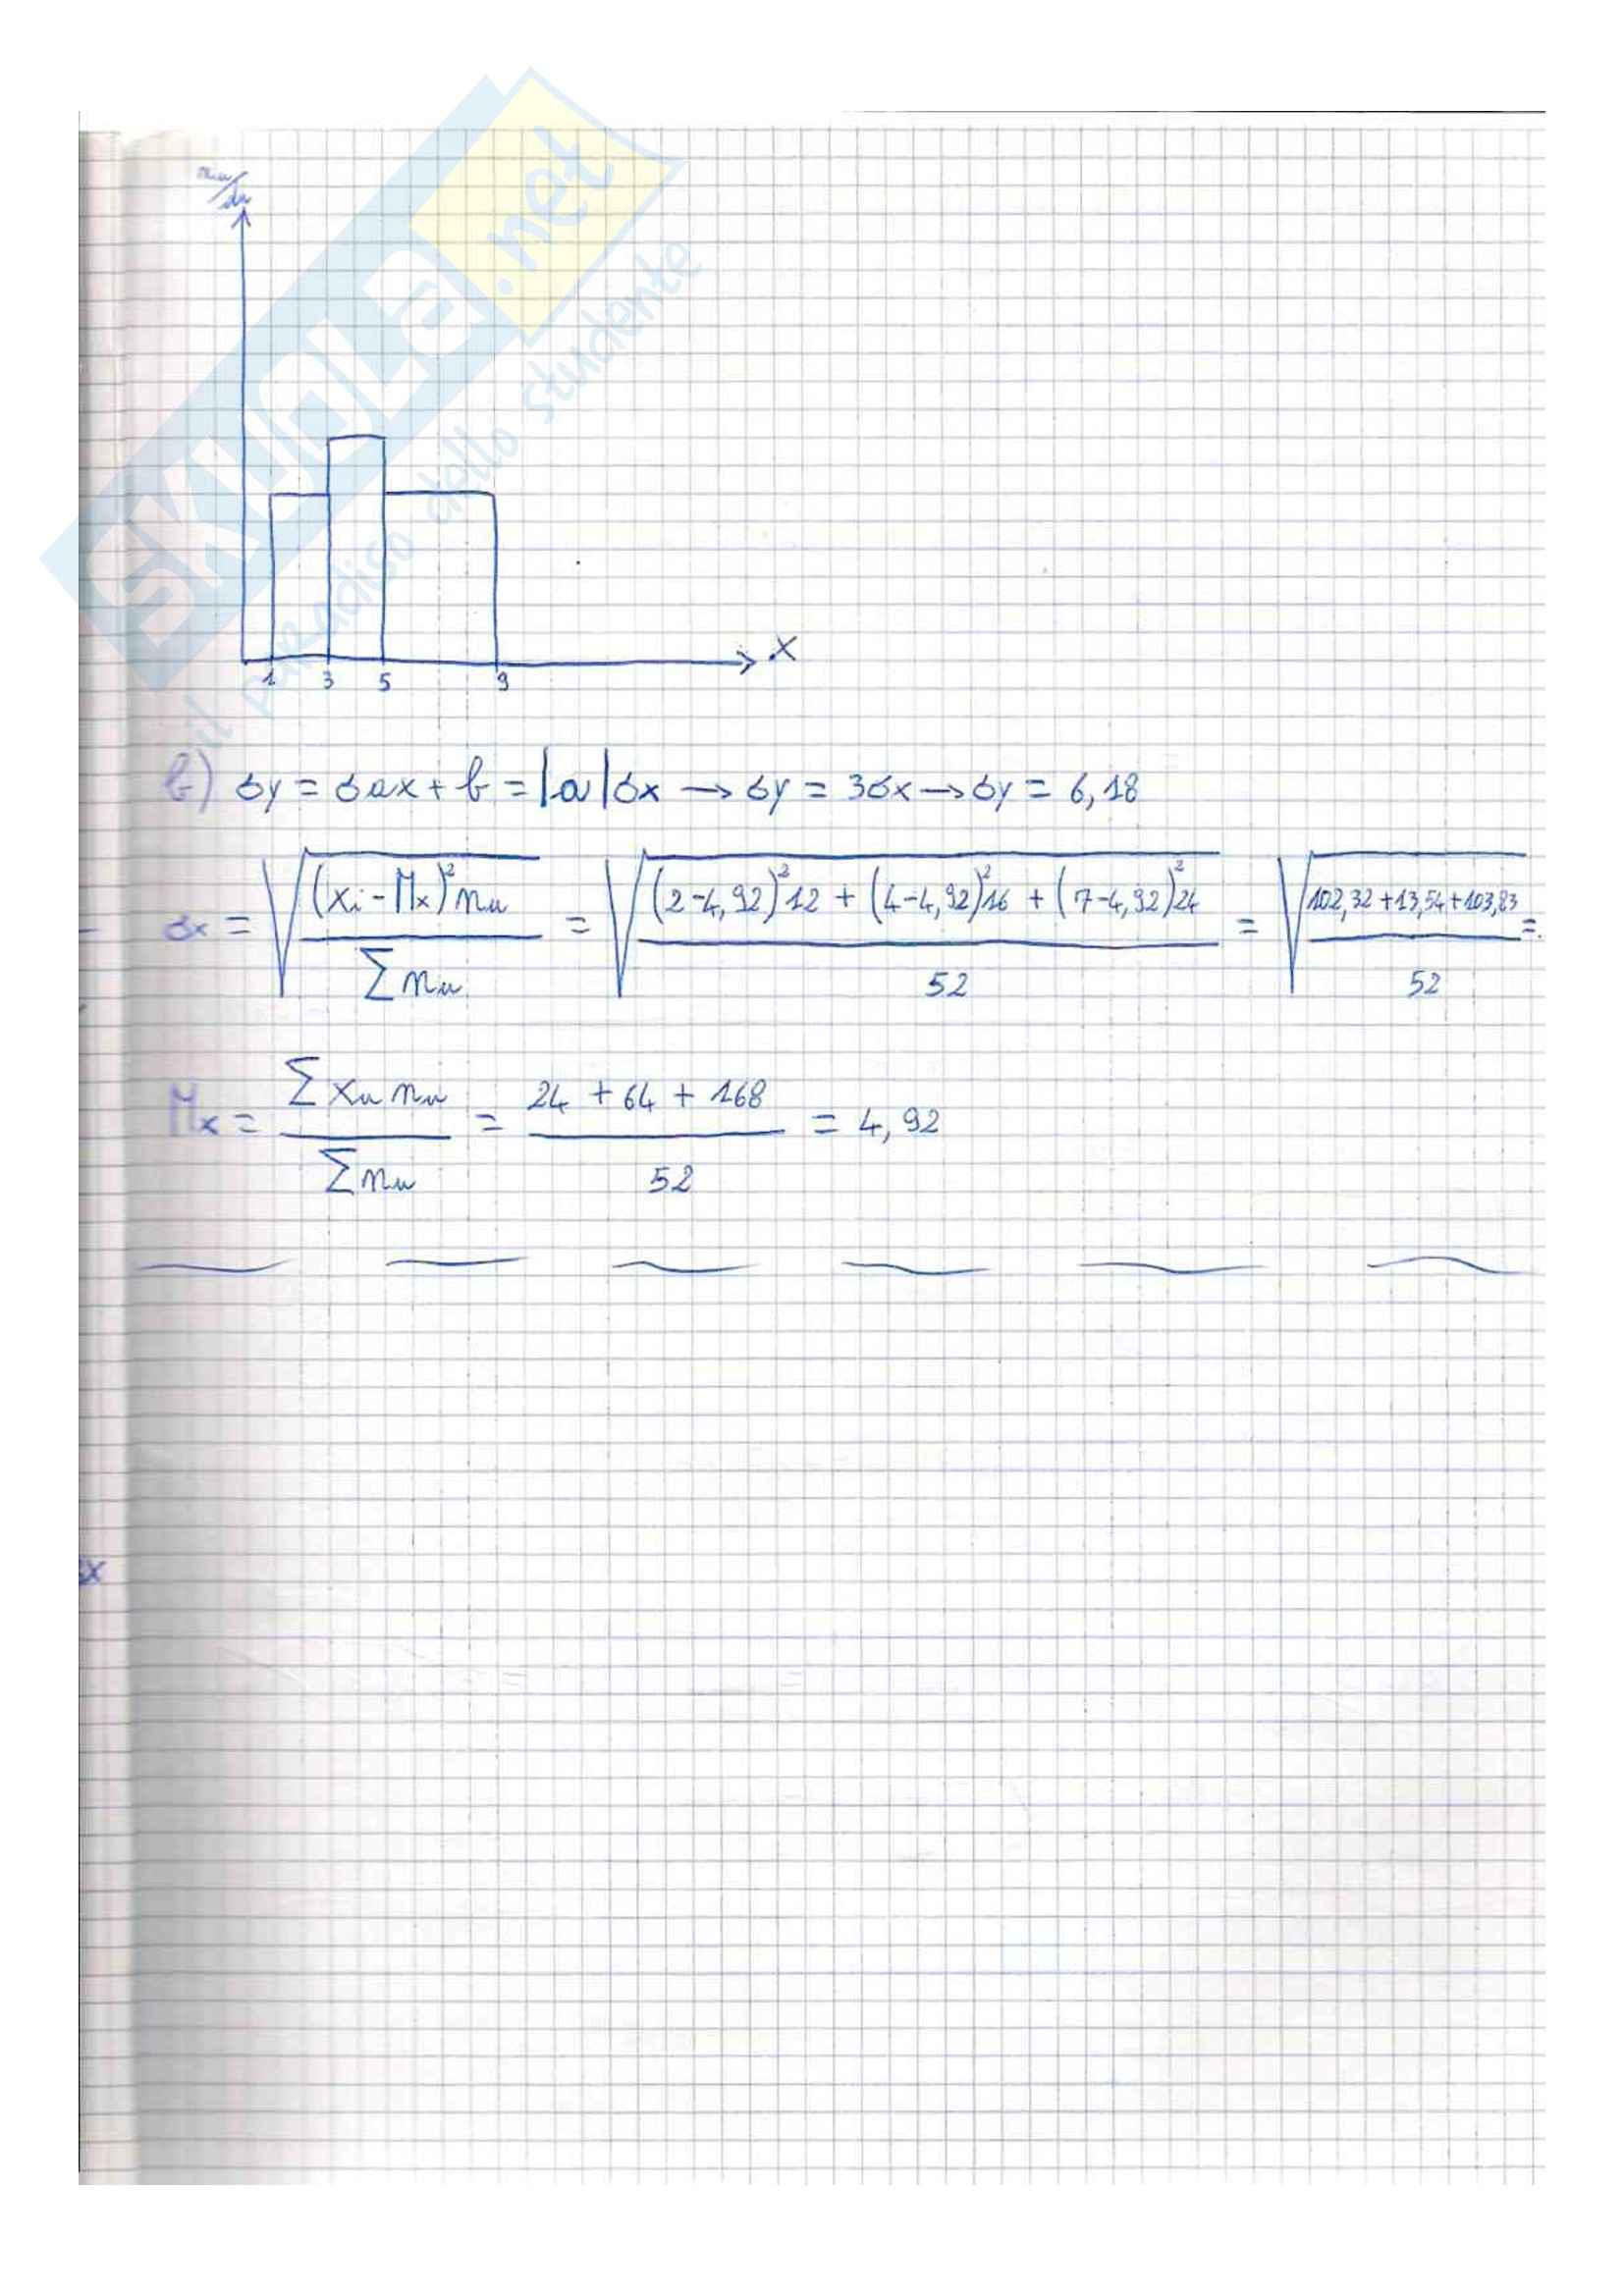 SKUOLA.net
il paradiso dello studente
nu/du
X
1 3 5 9
b) σy = σax + b = |a|σx → σy = 3σx → σy = 6,18
σx = √((xi - Mx)² nu / ∑nu) = √(((2-4,92)² 12 + (4-4,92)² 16 + (7-4,92)² 24) / 52) = √((102,32 + 13,54 + 103,83) / 52) =
Mx = ∑xu nu / ∑nu = (24 + 64 + 168) / 52 = 4,92
x